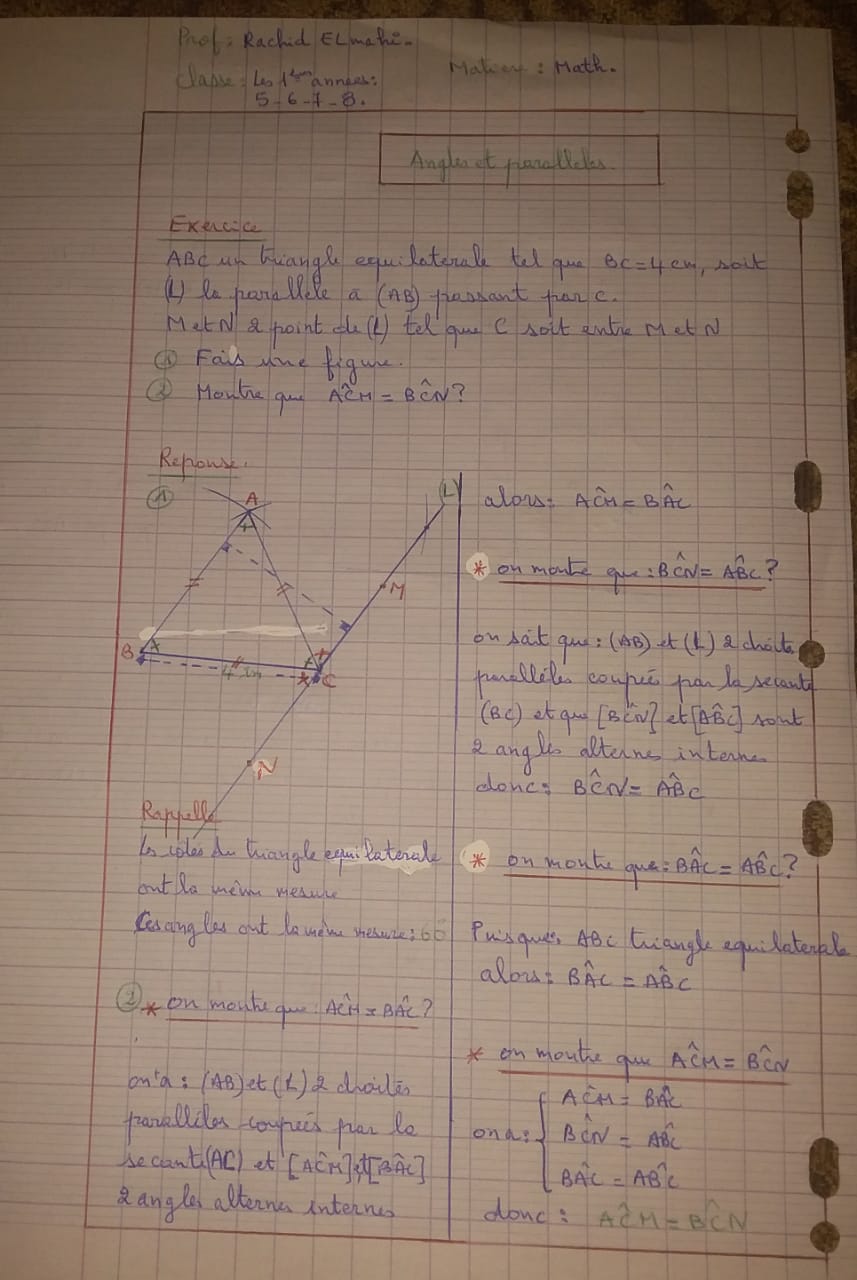 Prof: Rachid ELmahi.
Matiere: Math.
Classe: Les 1ères annees:
5-6-7-8.
Angles et paralleles
Exercice
ABC un triangle equilaterale tel que BC=4cm, soit
(L) la parallèle à (AB) passant par C.
M et N 2 point de (L) tel que C soit entre M et N
① Fais une figure.
② Montre que AĈM = BĈN?
Reponse.
①
A
(L)
M
B
4 cm
C
N
Rappelle
Les cotés du triangle equilaterale
ont la même mesure
Ces angles ont la même mesure: 60
② * on montre que: AĈM = BÂC?
on a: (AB) et (L) 2 droites
parallèles coupées par la
secante (AC) et [AĈM] et [BÂC]
2 angles alternes internes
alors: AĈM = BÂC
* on montre que: BĈN = AB̂C?
on sait que: (AB) et (L) 2 droite
parallèles coupées par la secante
(BC) et que [BĈN] et [AB̂C] sont
2 angles alternes interne
donc: BĈN = AB̂C
* on montre que: BÂC = AB̂C?
Puisque: ABC triangle equilaterale
alors: BÂC = AB̂C
* on montre que AĈM = BĈN
AĈM = BÂC
on a: BĈN = AB̂C
BÂC = AB̂C
donc: AĈM = BĈN